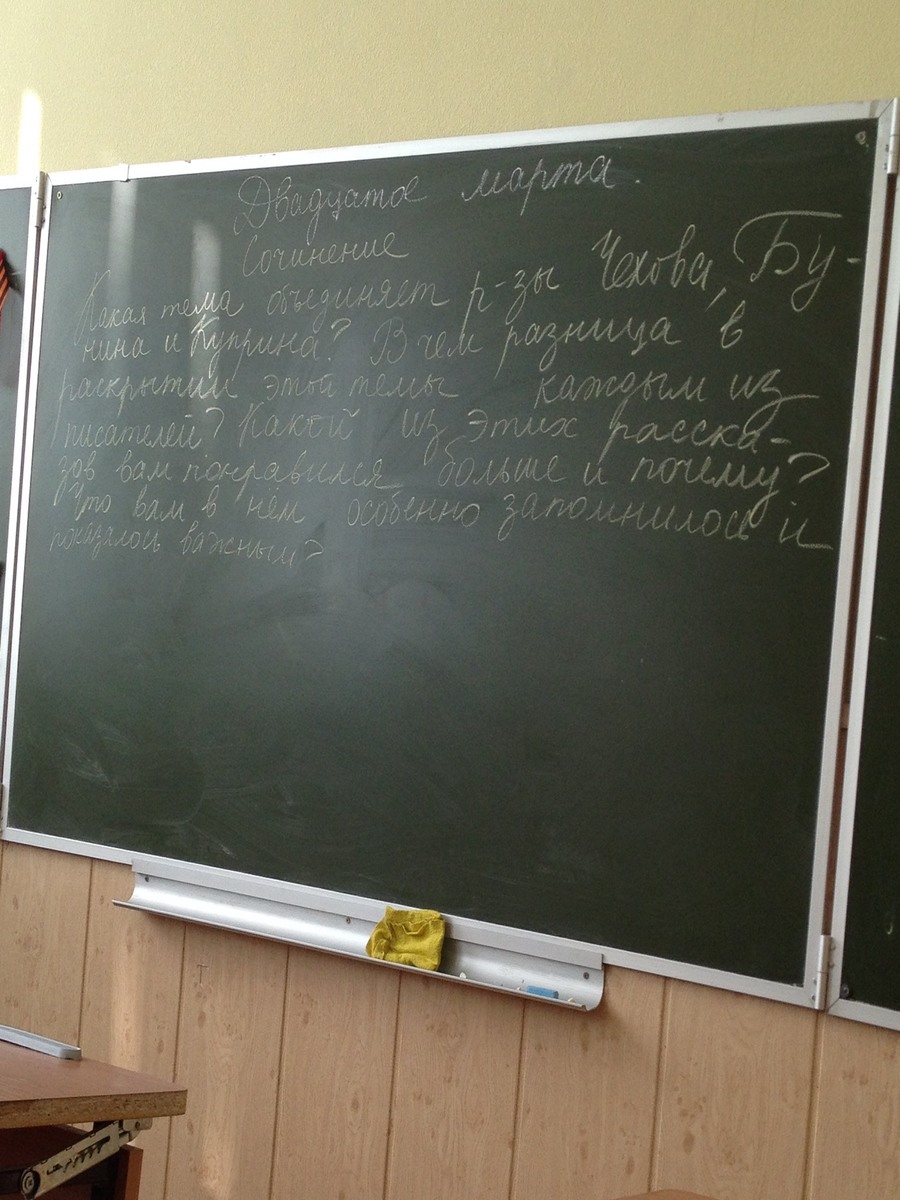 Двадцатое марта.
Сочинение
Какая тема объединяет р-зы Чехова, Бу-
нина и Куприна? В чем разница в
раскрытии этой темы каждым из
писателей? Какой из этих расска-
зов вам понравился больше и почему?
Что вам в нём особенно запомнилось и
показалось важным?